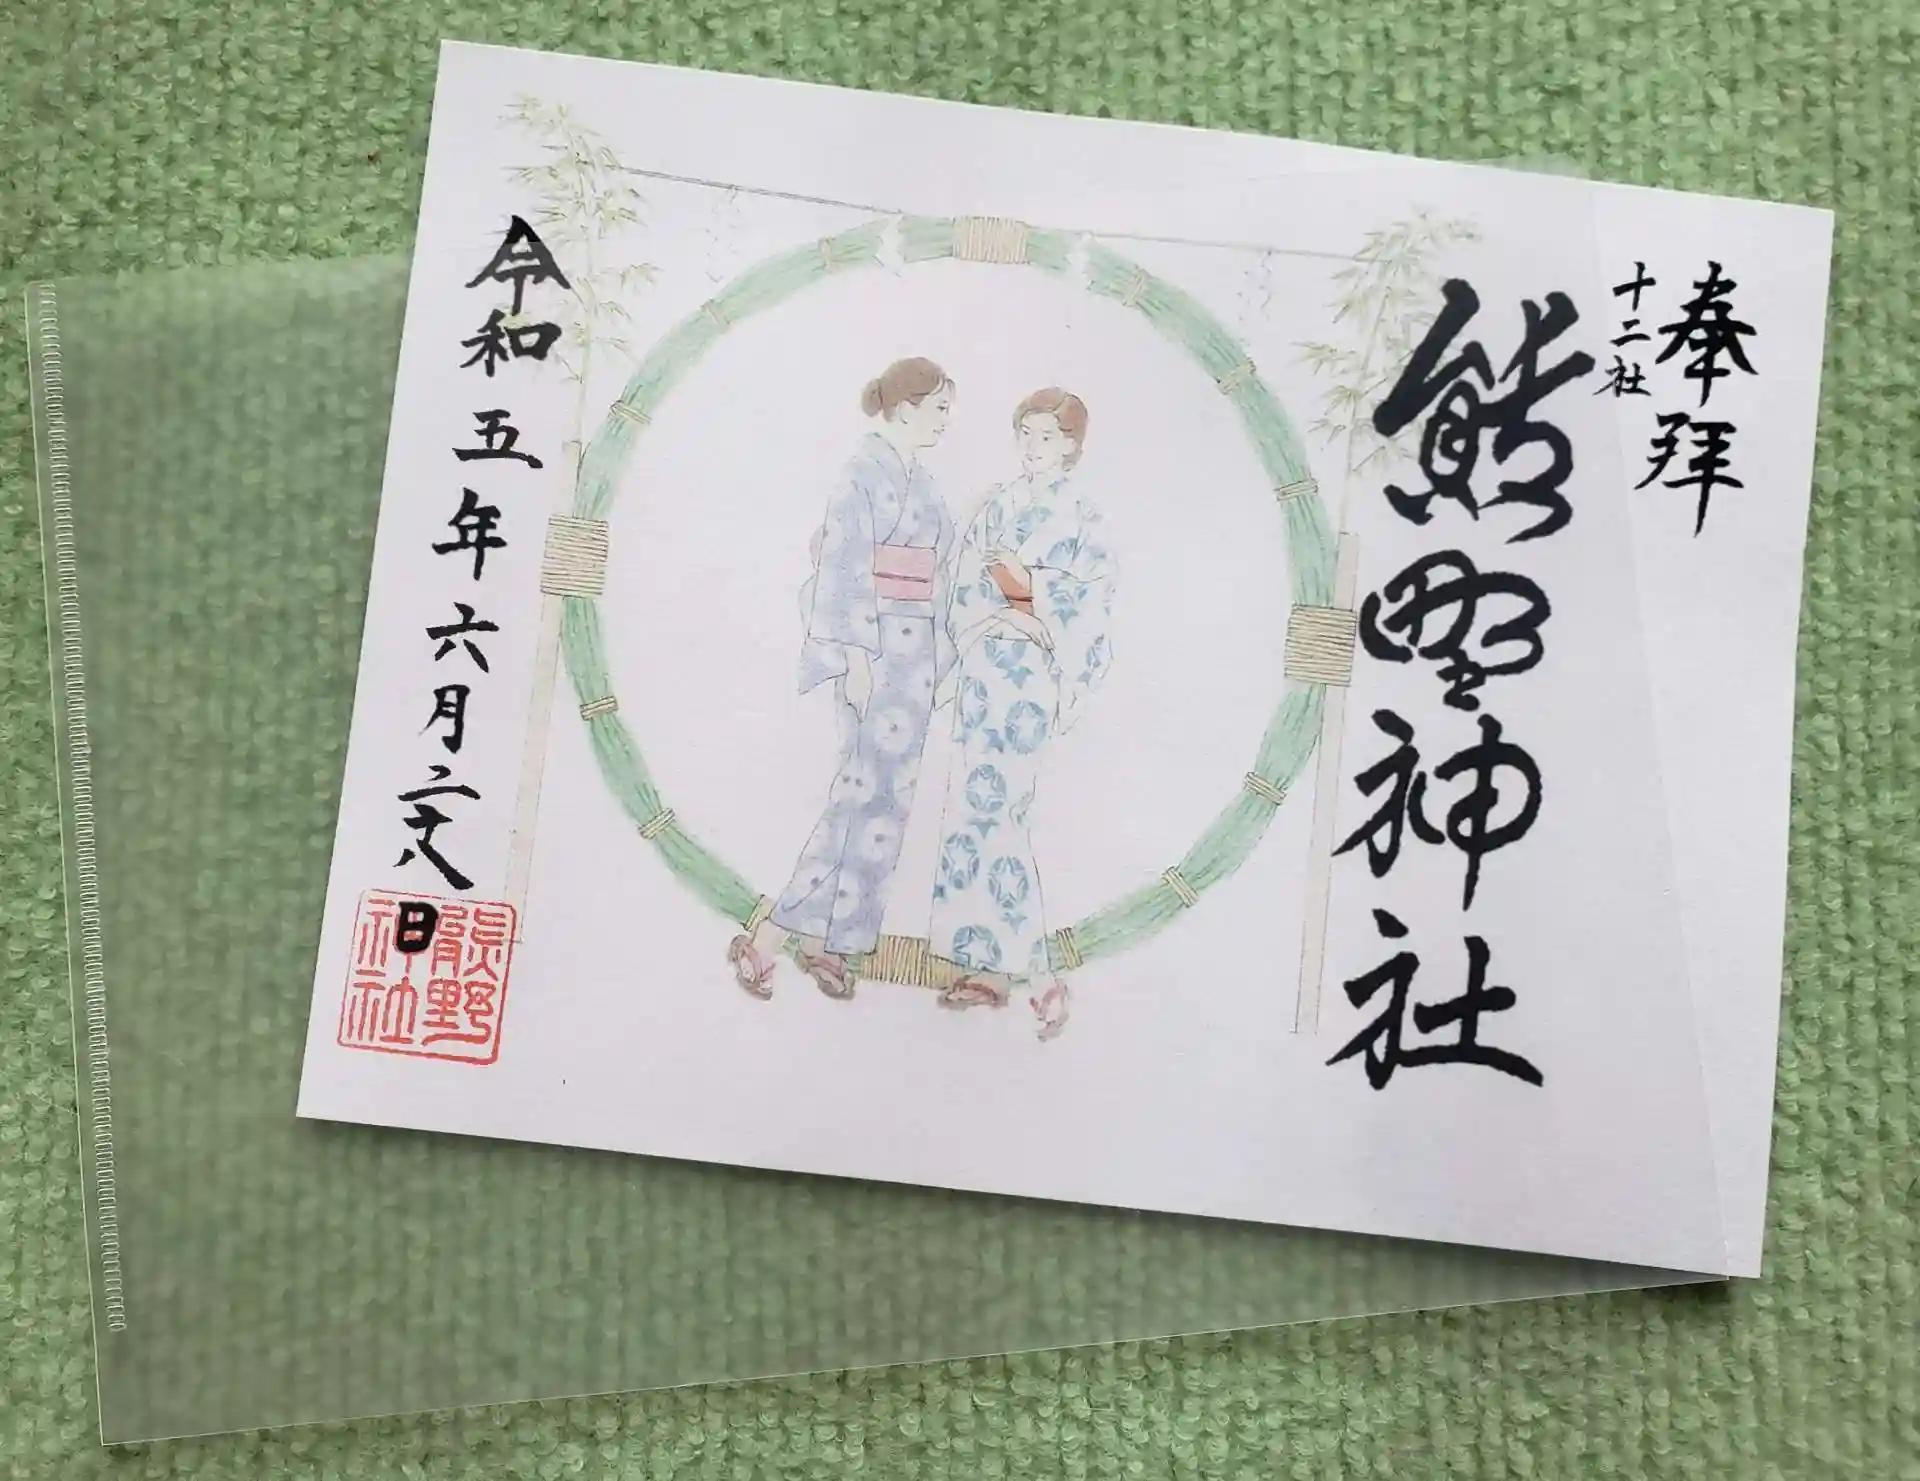 奉拝
十二社
熊野神社
令和五年六月二十八日
熊野
神社